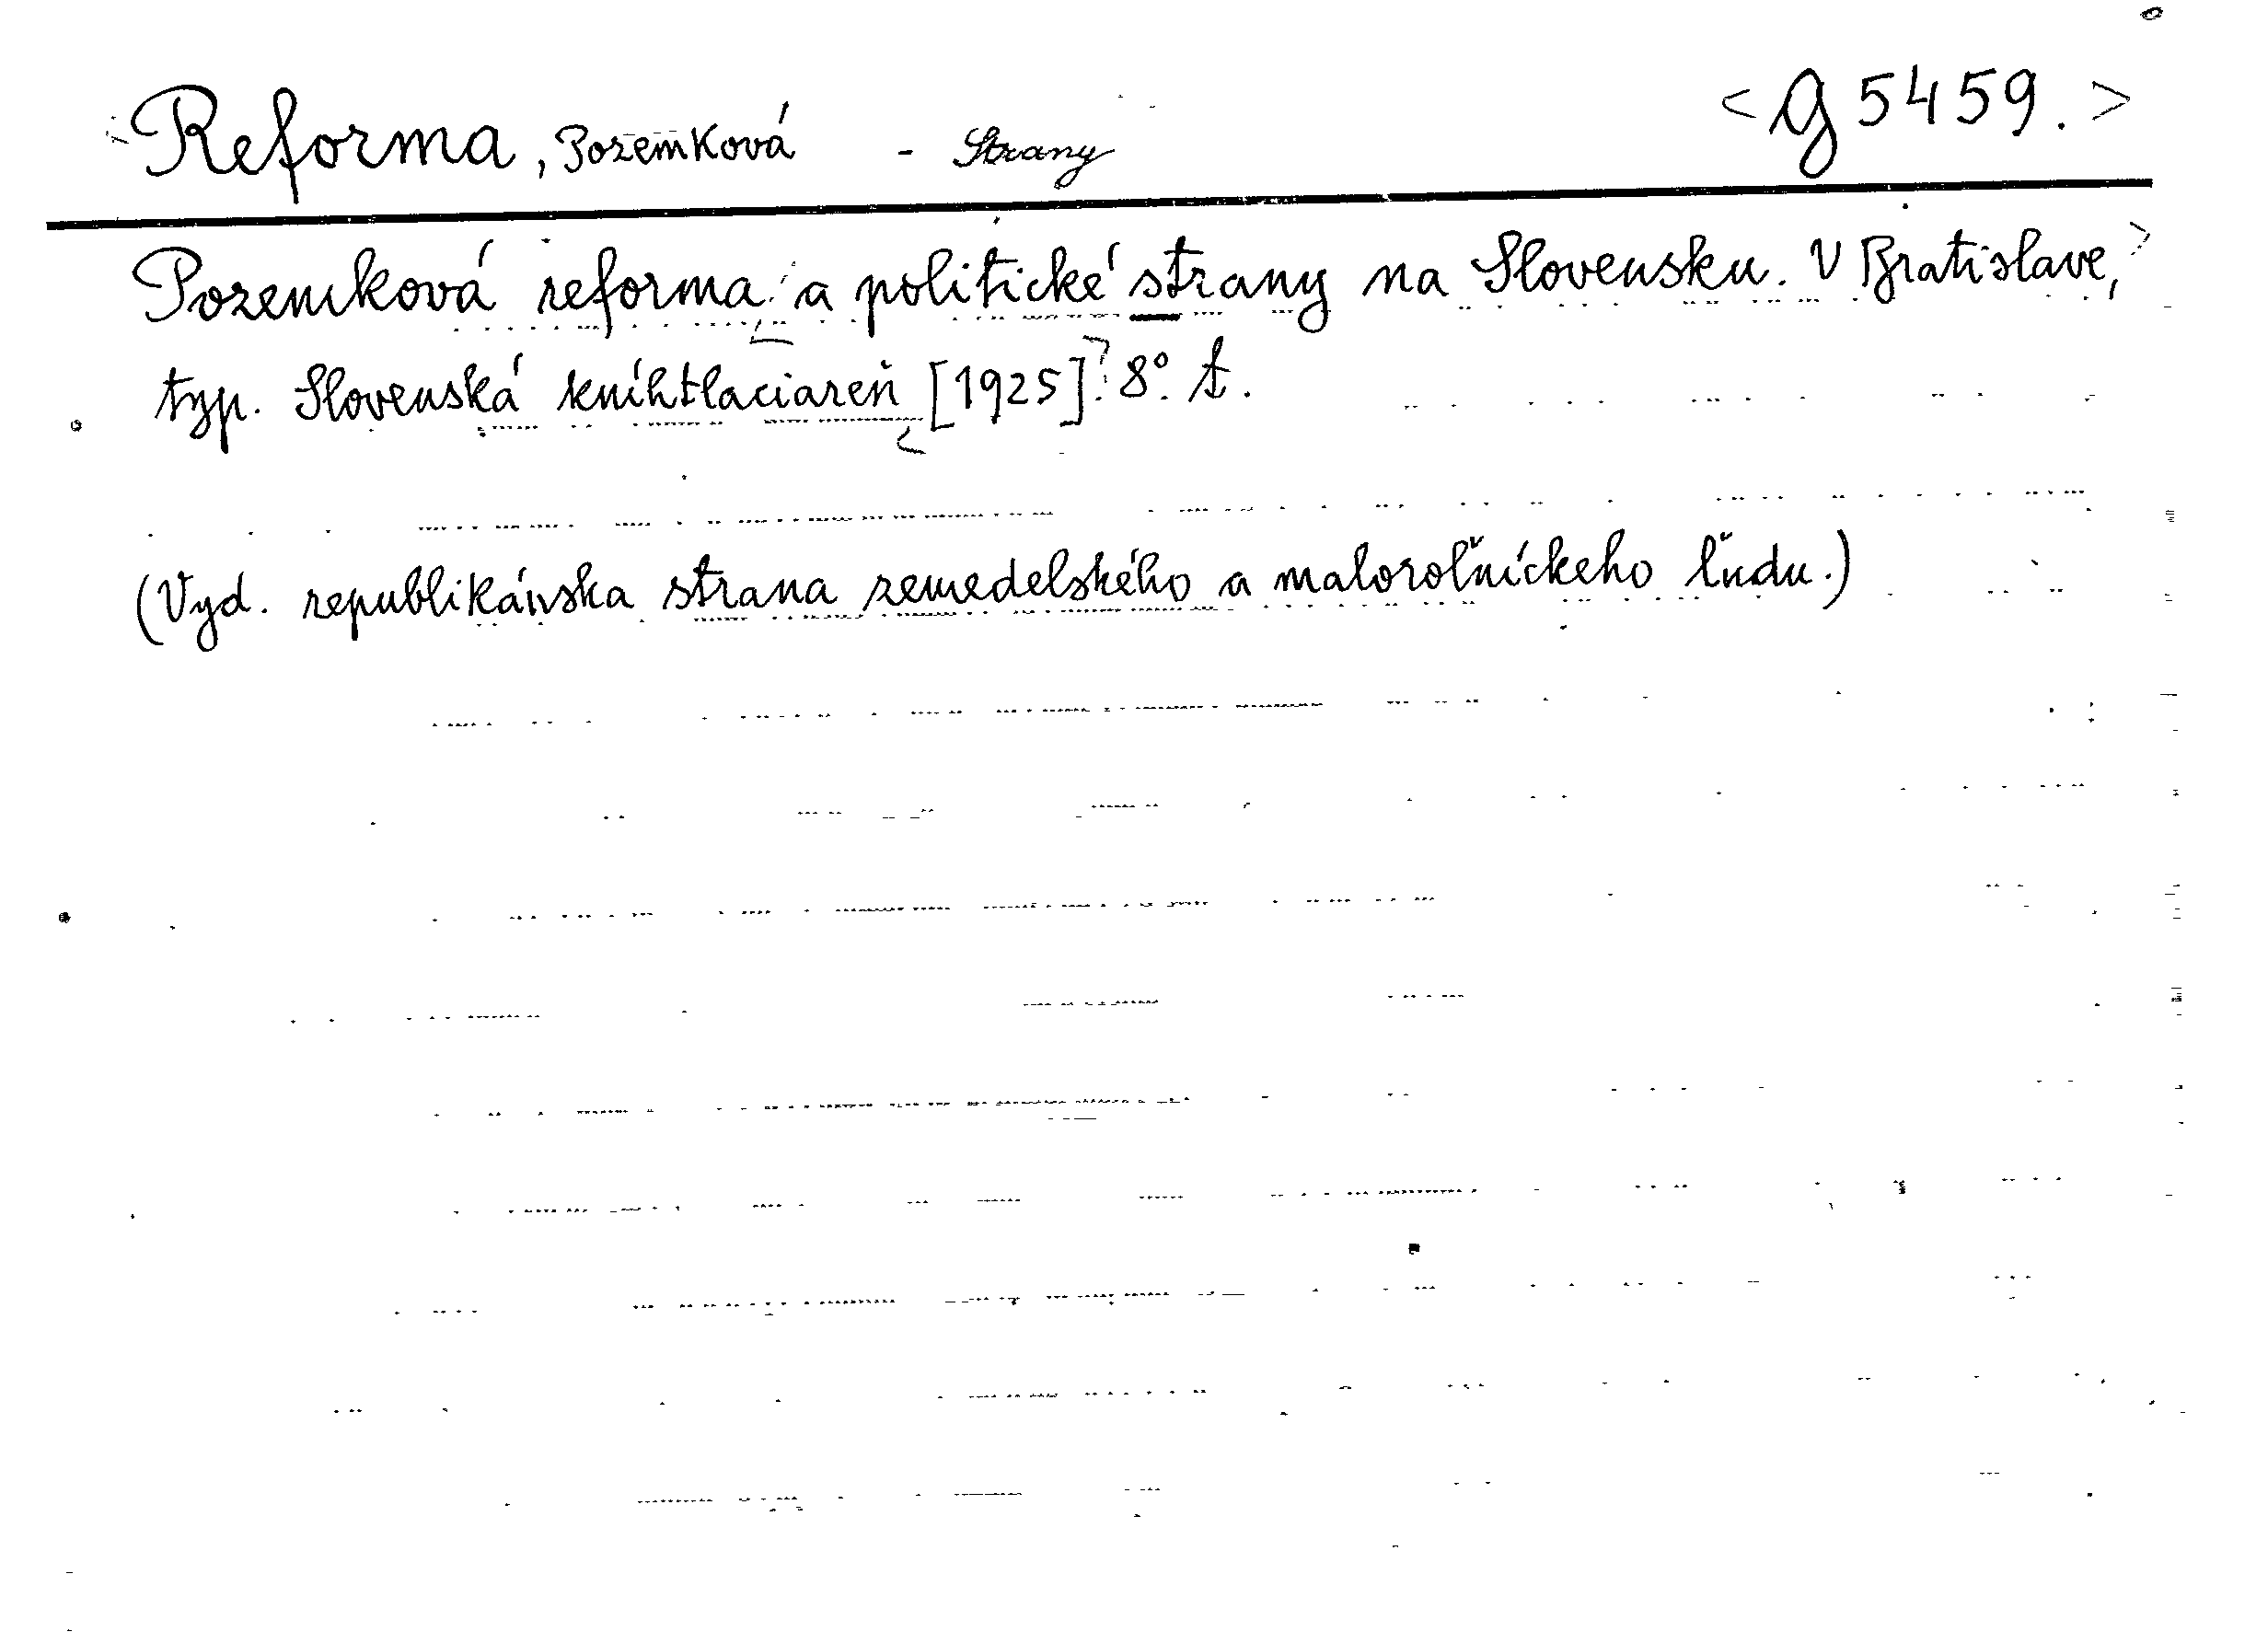 Reforma, Pozemková - Strany <G 5459.>
Pozemková reforma a politické strany na Slovensku. V Bratislave,
typ. Slovenská kníhtlačiareň [1925]. 8°. t.
(Vyd. republikánska strana zemedelského a maloroľníckeho ľudu.)